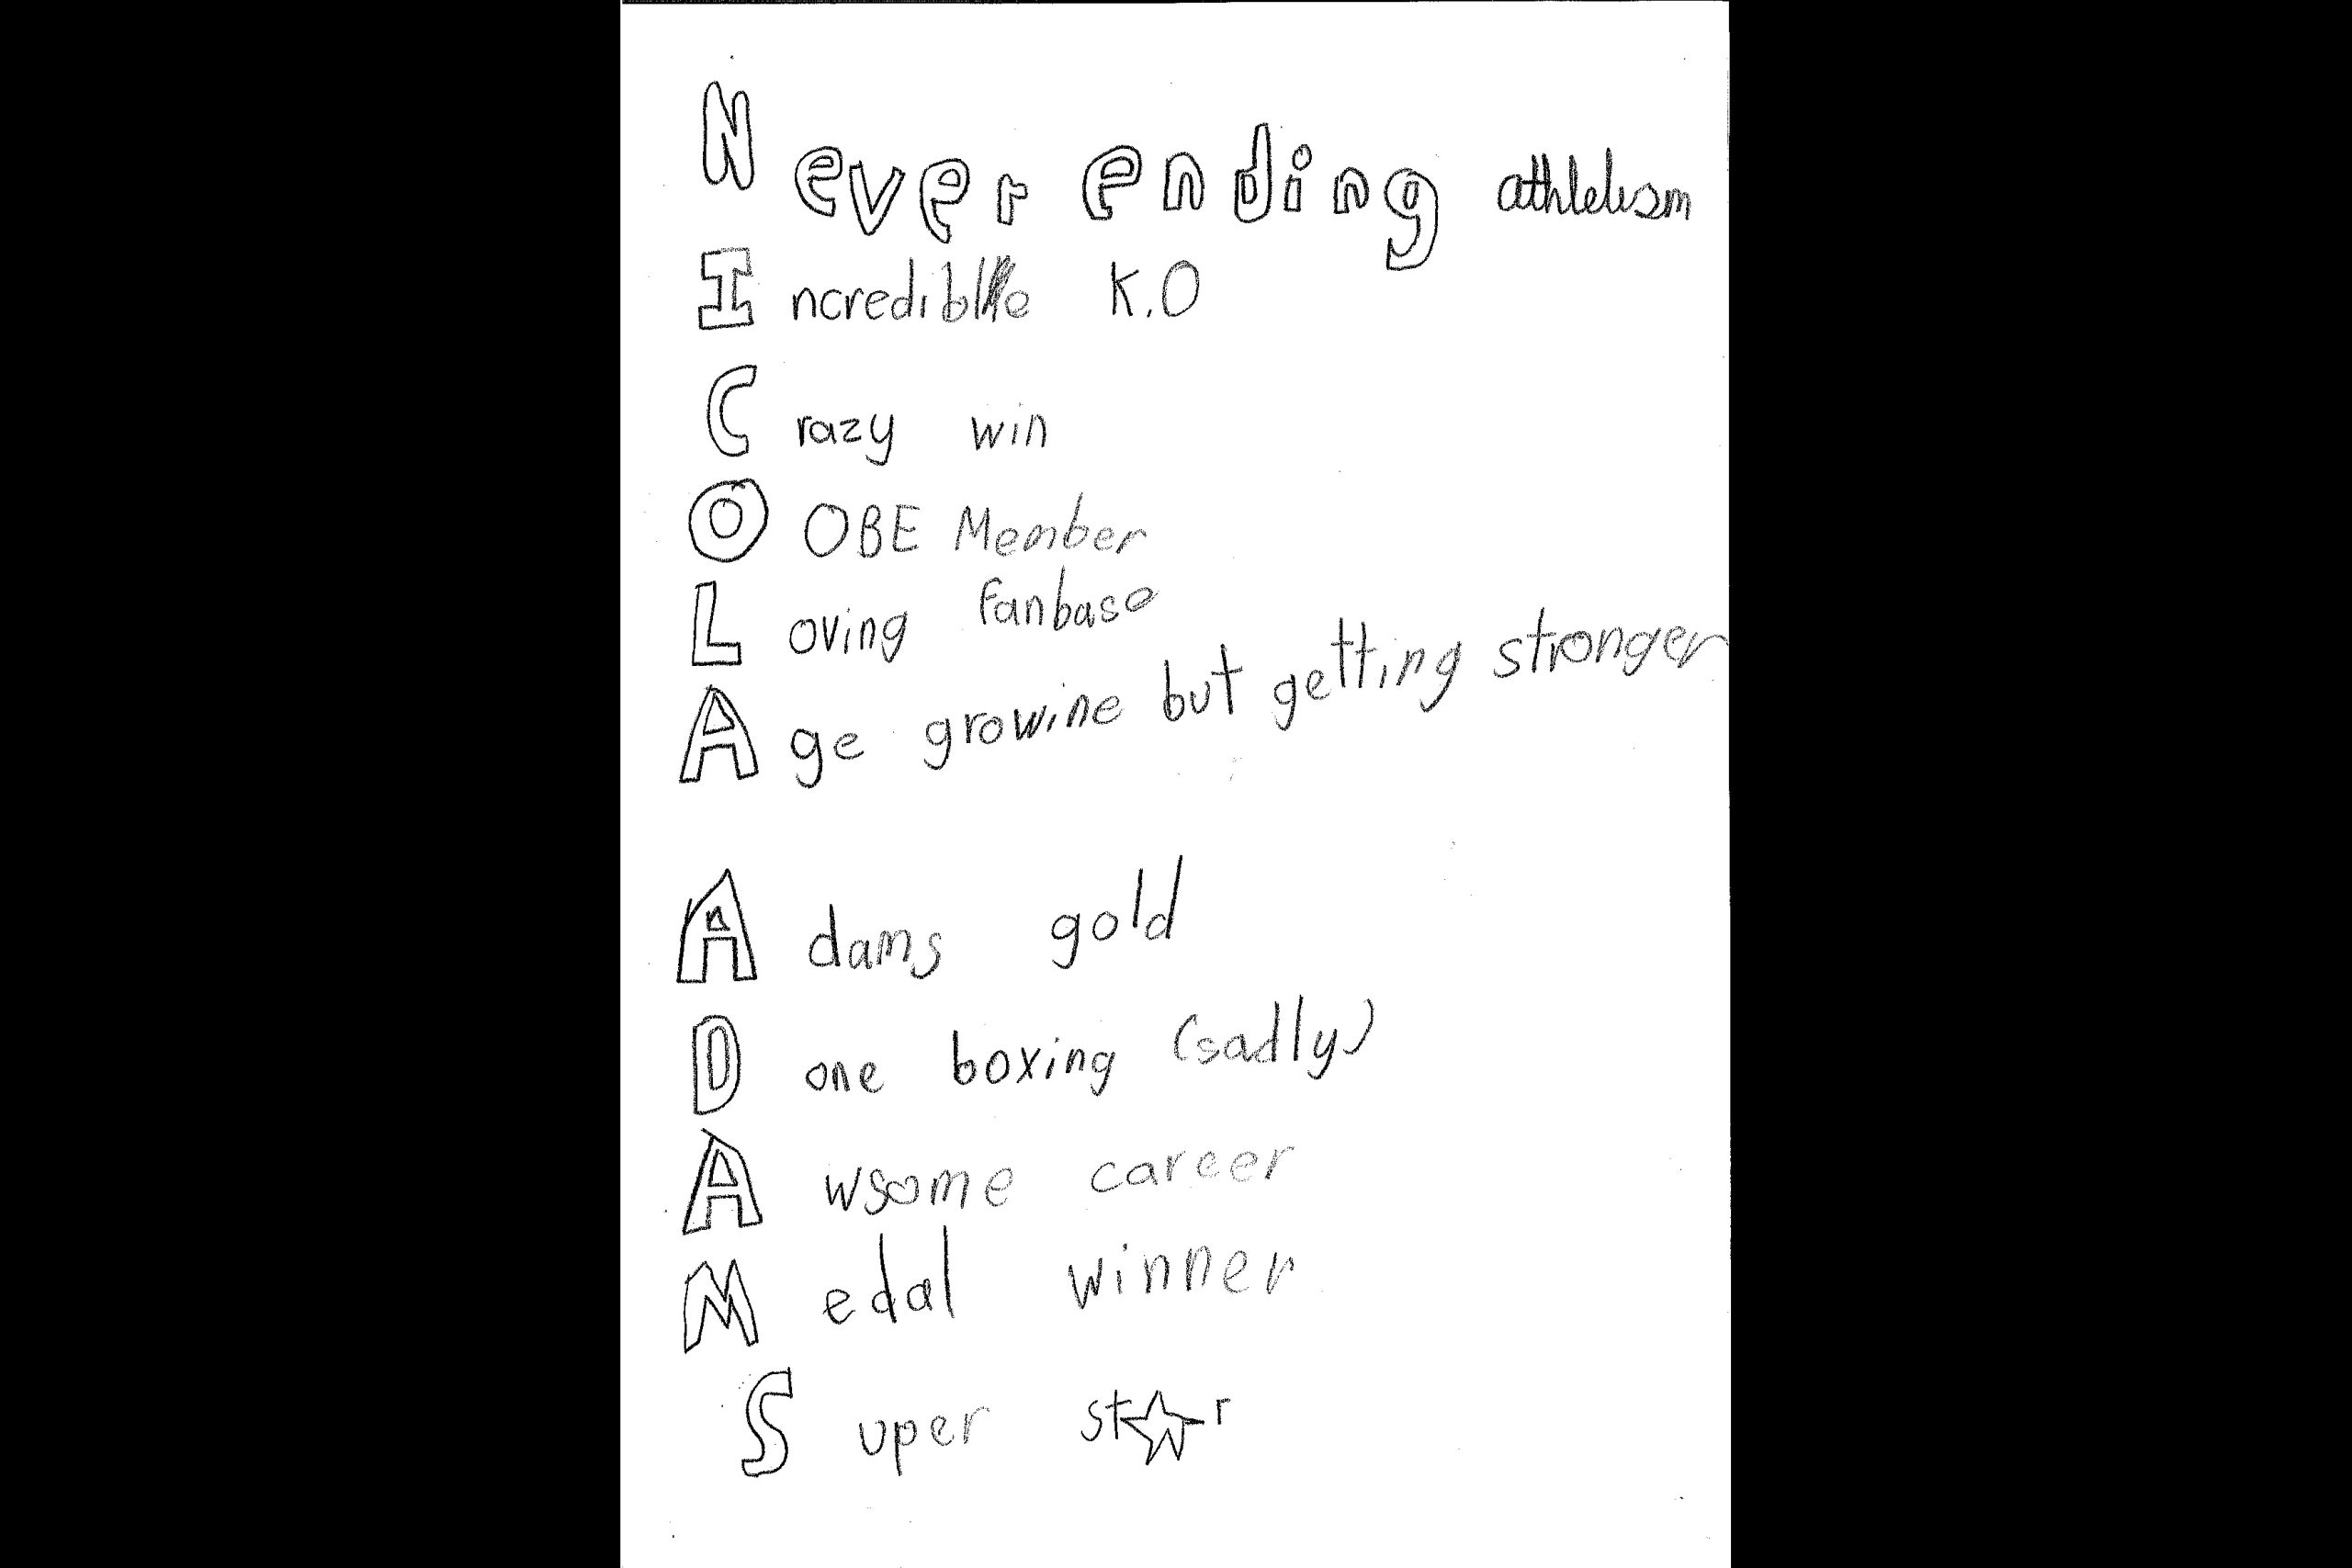 Never ending athletism
Incredible K.O
Crazy win
O OBE Member
Loving fanbase
Age growine but getting stronger
Adams gold
Done boxing (sadly)
Awsome career
Medal winner
Super st☆r